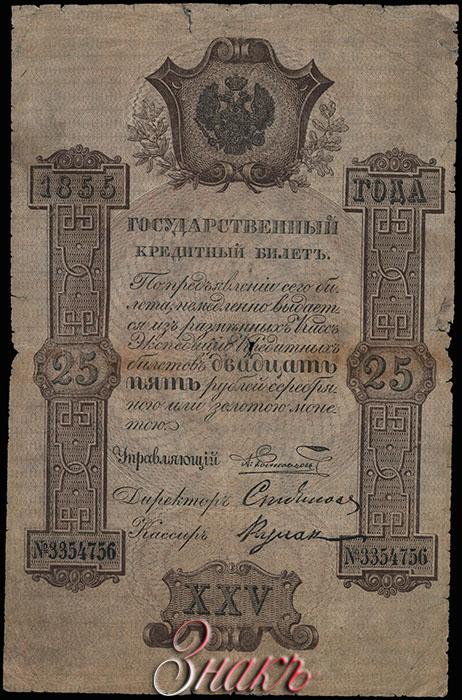 1855 ГОДА
ГОСУДАРСТВЕННЫЙ
КРЕДИТНЫЙ БИЛЕТЪ.
По предъявленіи сего би-
лета, немедленно выдает-
ся изъ размѣнныхъ кассъ
Экспедиціи Кредитныхъ
билетовъ двадцать
пять рублей серебря-
ною или золотою моне-
тою.
25 25
Управляющій
Директоръ
Кассиръ
№3354756 №3354756
XXV
Знакъ